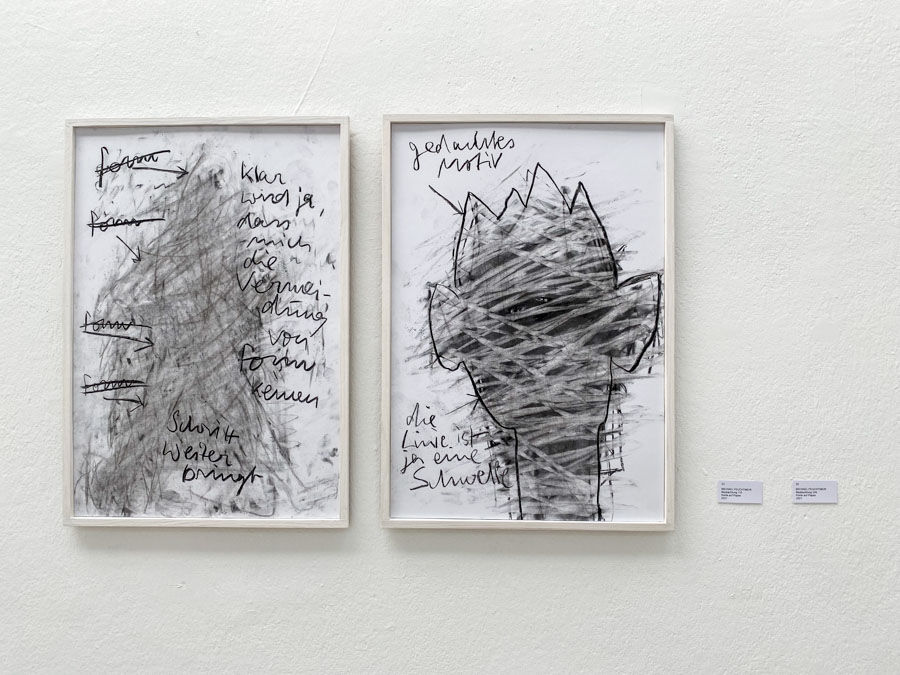 form
form
form
form
klar
wird ja,
dass
mich
die
Vermei-
dung
von
form
keinen
Schritt
weiter
bringt
gedachtes
Motiv
die
Linie ist
ja eine
Schwelle